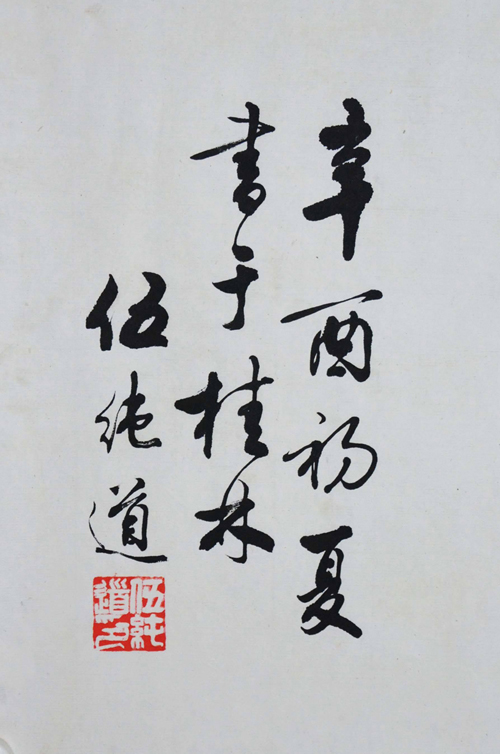 辛酉初夏
书于桂林
伍纯道
伍純道印